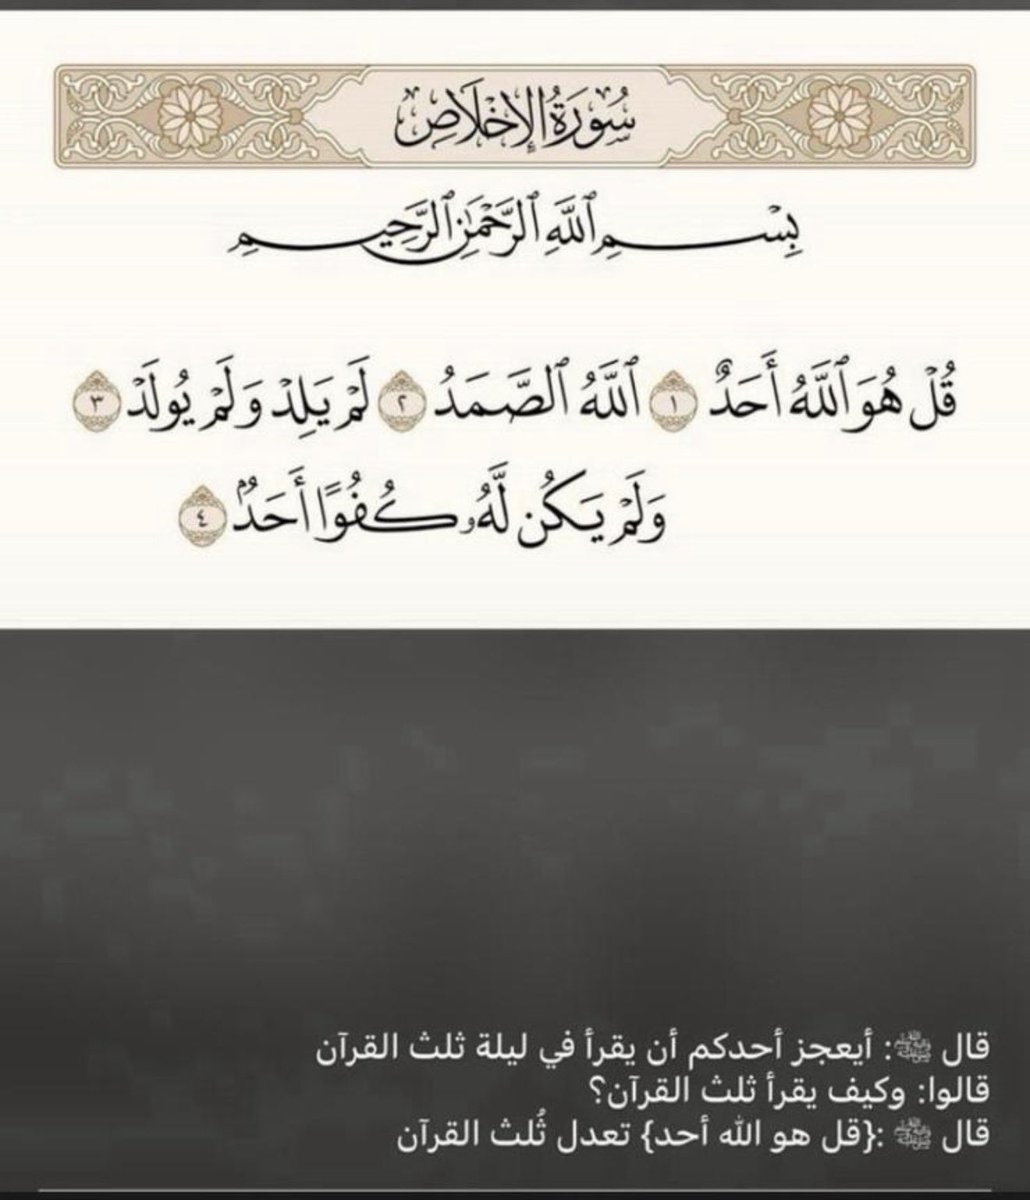 سُورَةُ الإِخْلَاصِ
بِسْمِ ٱللَّهِ ٱلرَّحْمَٰنِ ٱلرَّحِيمِ
قُلْ هُوَ ٱللَّهُ أَحَدٌ ١ ٱللَّهُ ٱلصَّمَدُ ٢ لَمْ يَلِدْ وَلَمْ يُولَدْ ٣
وَلَمْ يَكُن لَّهُۥ كُفُوًا أَحَدٌۢ ٤
قال ﷺ: أيعجز أحدكم أن يقرأ في ليلة ثلث القرآن
قالوا: وكيف يقرأ ثلث القرآن؟
قال ﷺ :{قل هو الله أحد} تعدل ثُلث القرآن